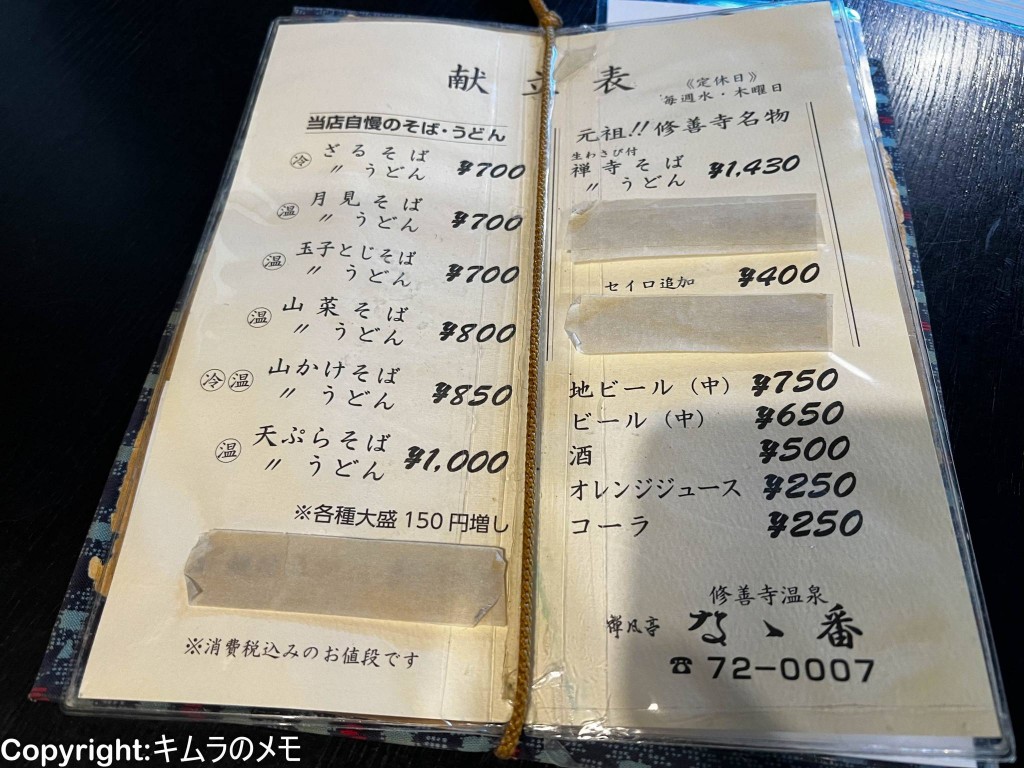 献立表
《定休日》
毎週水・木曜日
当店自慢のそば・うどん
冷 ざるそば
〃 うどん ¥700
温 月見そば
〃 うどん ¥700
温 玉子とじそば
〃 うどん ¥700
温 山菜そば
〃 うどん ¥800
冷 温 山かけそば
〃 うどん ¥850
温 天ぷらそば
〃 うどん ¥1,000
※各種大盛150円増し
※消費税込みのお値段です
元祖!!修善寺名物
生わさび付
禅寺そば
〃 うどん ¥1,430
セイロ追加 ¥400
地ビール(中) ¥750
ビール(中) ¥650
酒 ¥500
オレンジジュース ¥250
コーラ ¥250
修善寺温泉
禅風亭 なゝ番
☎72-0007
Copyright:キムラのメモ